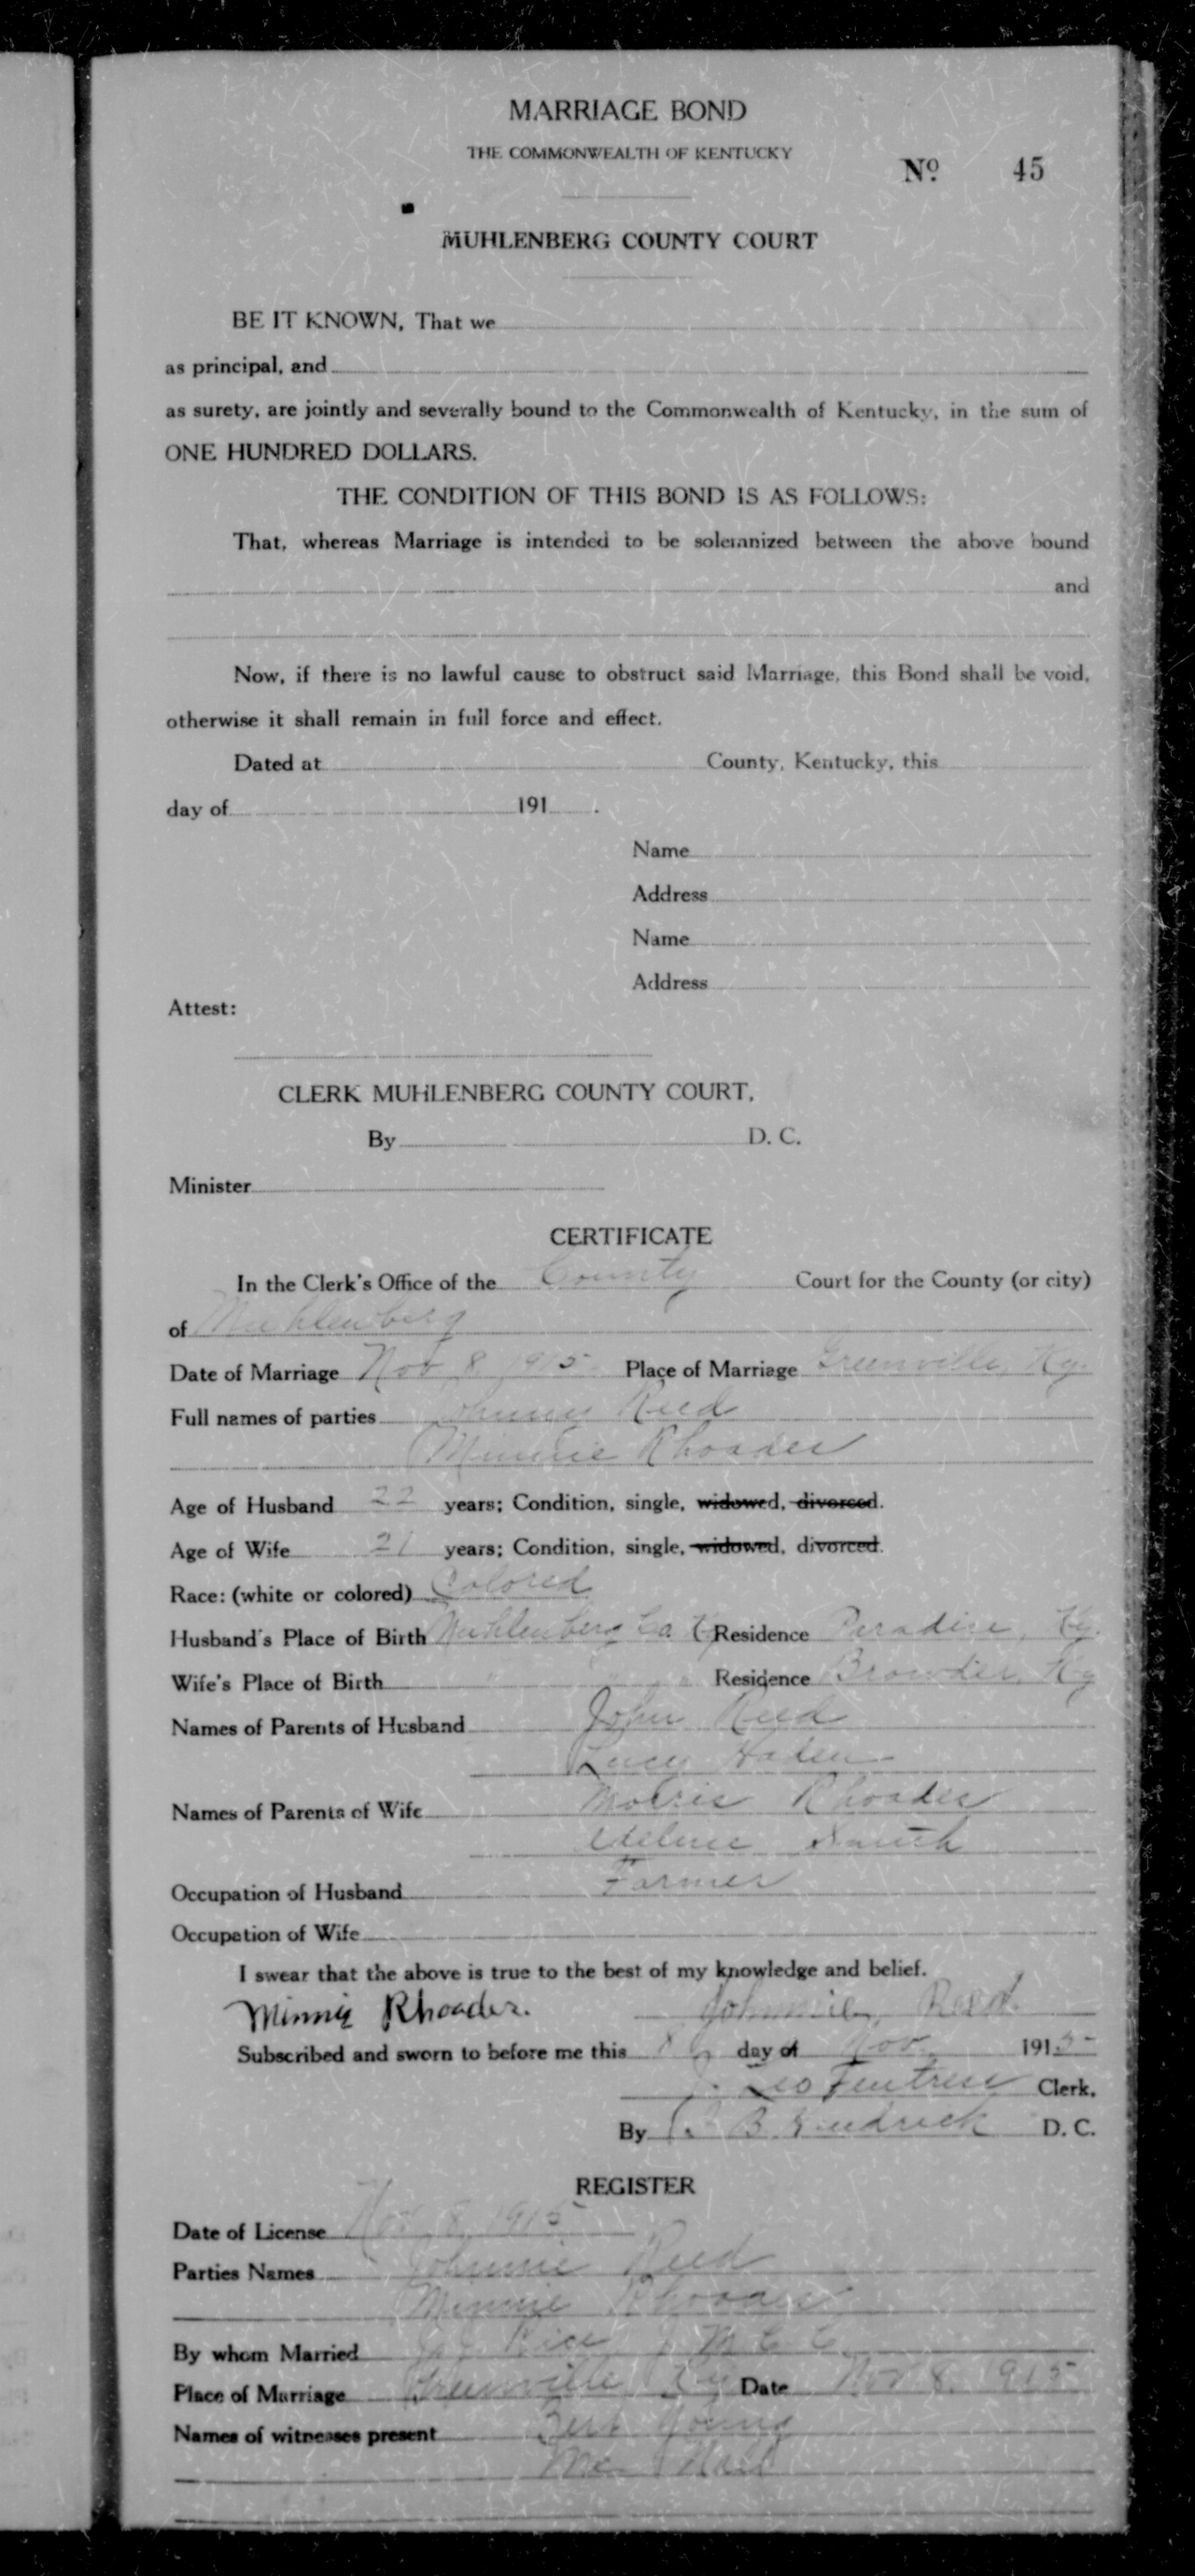 MARRIAGE BOND
THE COMMONWEALTH OF KENTUCKY
No. 45
MUHLENBERG COUNTY COURT
BE IT KNOWN, That we
as principal, and
as surety, are jointly and severally bound to the Commonwealth of Kentucky, in the sum of
ONE HUNDRED DOLLARS.
THE CONDITION OF THIS BOND IS AS FOLLOWS:
That, whereas Marriage is intended to be solemnized between the above bound
and
Now, if there is no lawful cause to obstruct said Marriage, this Bond shall be void,
otherwise it shall remain in full force and effect.
Dated at County, Kentucky, this
day of 191 .
Name
Address
Name
Address
Attest:
CLERK MUHLENBERG COUNTY COURT,
By D. C.
Minister
CERTIFICATE
In the Clerk's Office of the County Court for the County (or city)
of Muhlenberg
Date of Marriage Nov 8 1915 Place of Marriage Greenville, Ky.
Full names of parties Johnnie Reed
Minnie Rhoades
Age of Husband 22 years; Condition, single, widowed, divorced.
Age of Wife 21 years; Condition, single, widowed, divorced.
Race: (white or colored) Colored
Husband's Place of Birth Muhlenberg Co. Ky Residence Paradise, Ky.
Wife's Place of Birth " " " Residence Browder, Ky
Names of Parents of Husband John Reed
Lucy Haden
Names of Parents of Wife Morris Rhoades
Smith
Occupation of Husband Farmer
Occupation of Wife
I swear that the above is true to the best of my knowledge and belief.
Minnie Rhoades. Johnnie Reed.
Subscribed and sworn to before me this 8 day of Nov. 1915
J. Leo Fentress Clerk,
By B. Kendrick D. C.
REGISTER
Date of License Nov 8 1915
Parties Names Johnnie Reed
Minnie Rhoades
By whom Married Rice J M C C
Place of Marriage Greenville Ky Date Nov 8, 1915
Names of witnesses present Young